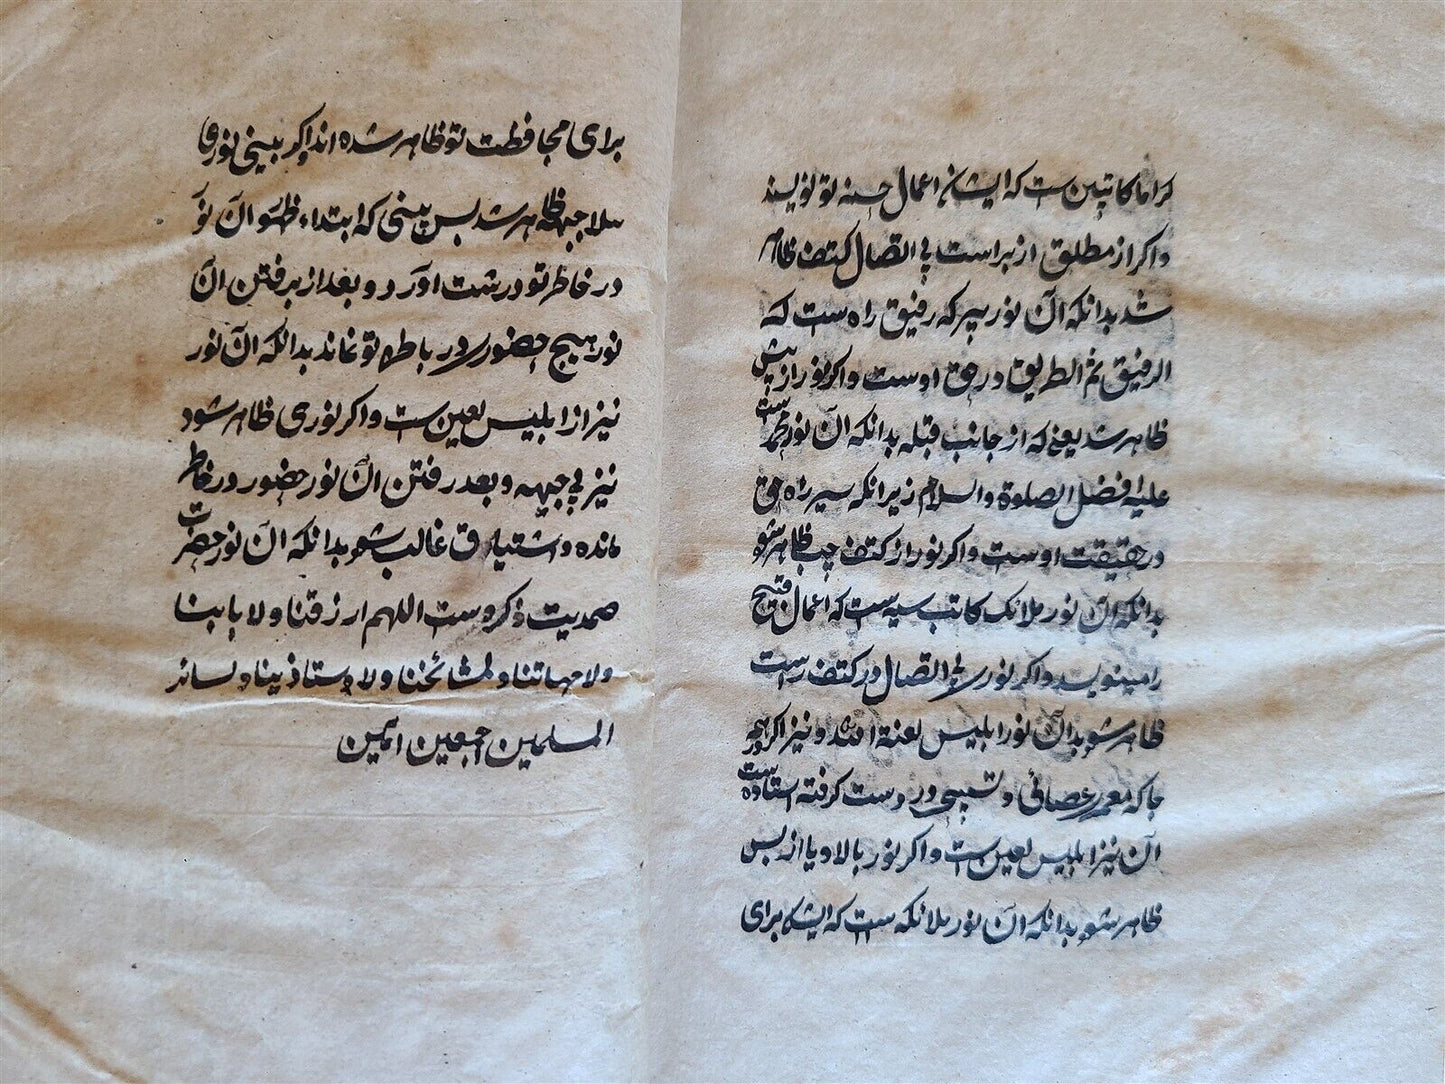 کراما کاتبین ست که ایشان اعمال حسنه تو نویسند
واکر از مطلق از براست بی اتصال کتف ظاهر
شد بدانکه آن نور پیر که رفیق راه ست که
الرفیق ثم الطریق در حق اوست واکر نور از پیش
ظاهر شد یعنی که از جانب قبله بدانکه آن نور محمد ست
علیه افضل الصلوة والسلام زیرانکه سیر راه حق
در حقیقت اوست واکر نور از کتف چپ ظاهر شو
بدانکه آن نور ملائک کاتب سیه ست که اعمال قبیح
را مینویسد واکر نوری بی اتصال در کتف راست
ظاهر شود بدان نور ابلیس لعنة الله و نیز اکر
جا که معمر عصائی و تسبیحی در دست کرفته استاده ست
آن نیز ابلیس لعین ست واکر نور بالا و یا از پس
ظاهر شود بدانکه آن نور ملائکه ست که ایشان برای
برای محافظت تو ظاهر شده اند واکر بینی نوری
بلا جهه ظاهر شد پس بینی که ابتداء ظهور آن نور
در خاطر تو درشت اورد و بعد از برفتن آن
نور هیچ حضوری در باطن تو نماند بدانکه آن نور
نیز از ابلیس لعین ست واکر نوری ظاهر شود
نیز بی جیهه و بعد رفتن آن نور حضور در خاطر
مانده و اشتیاق غالب شود بدانکه آن نور حضرت
صمدیت ذکروست اللهم ارزقنا ولا بابنا
ولامهاتنا ولمشائخنا ولاوستاذینا ولسائر
المسلمین اجمعین آمین